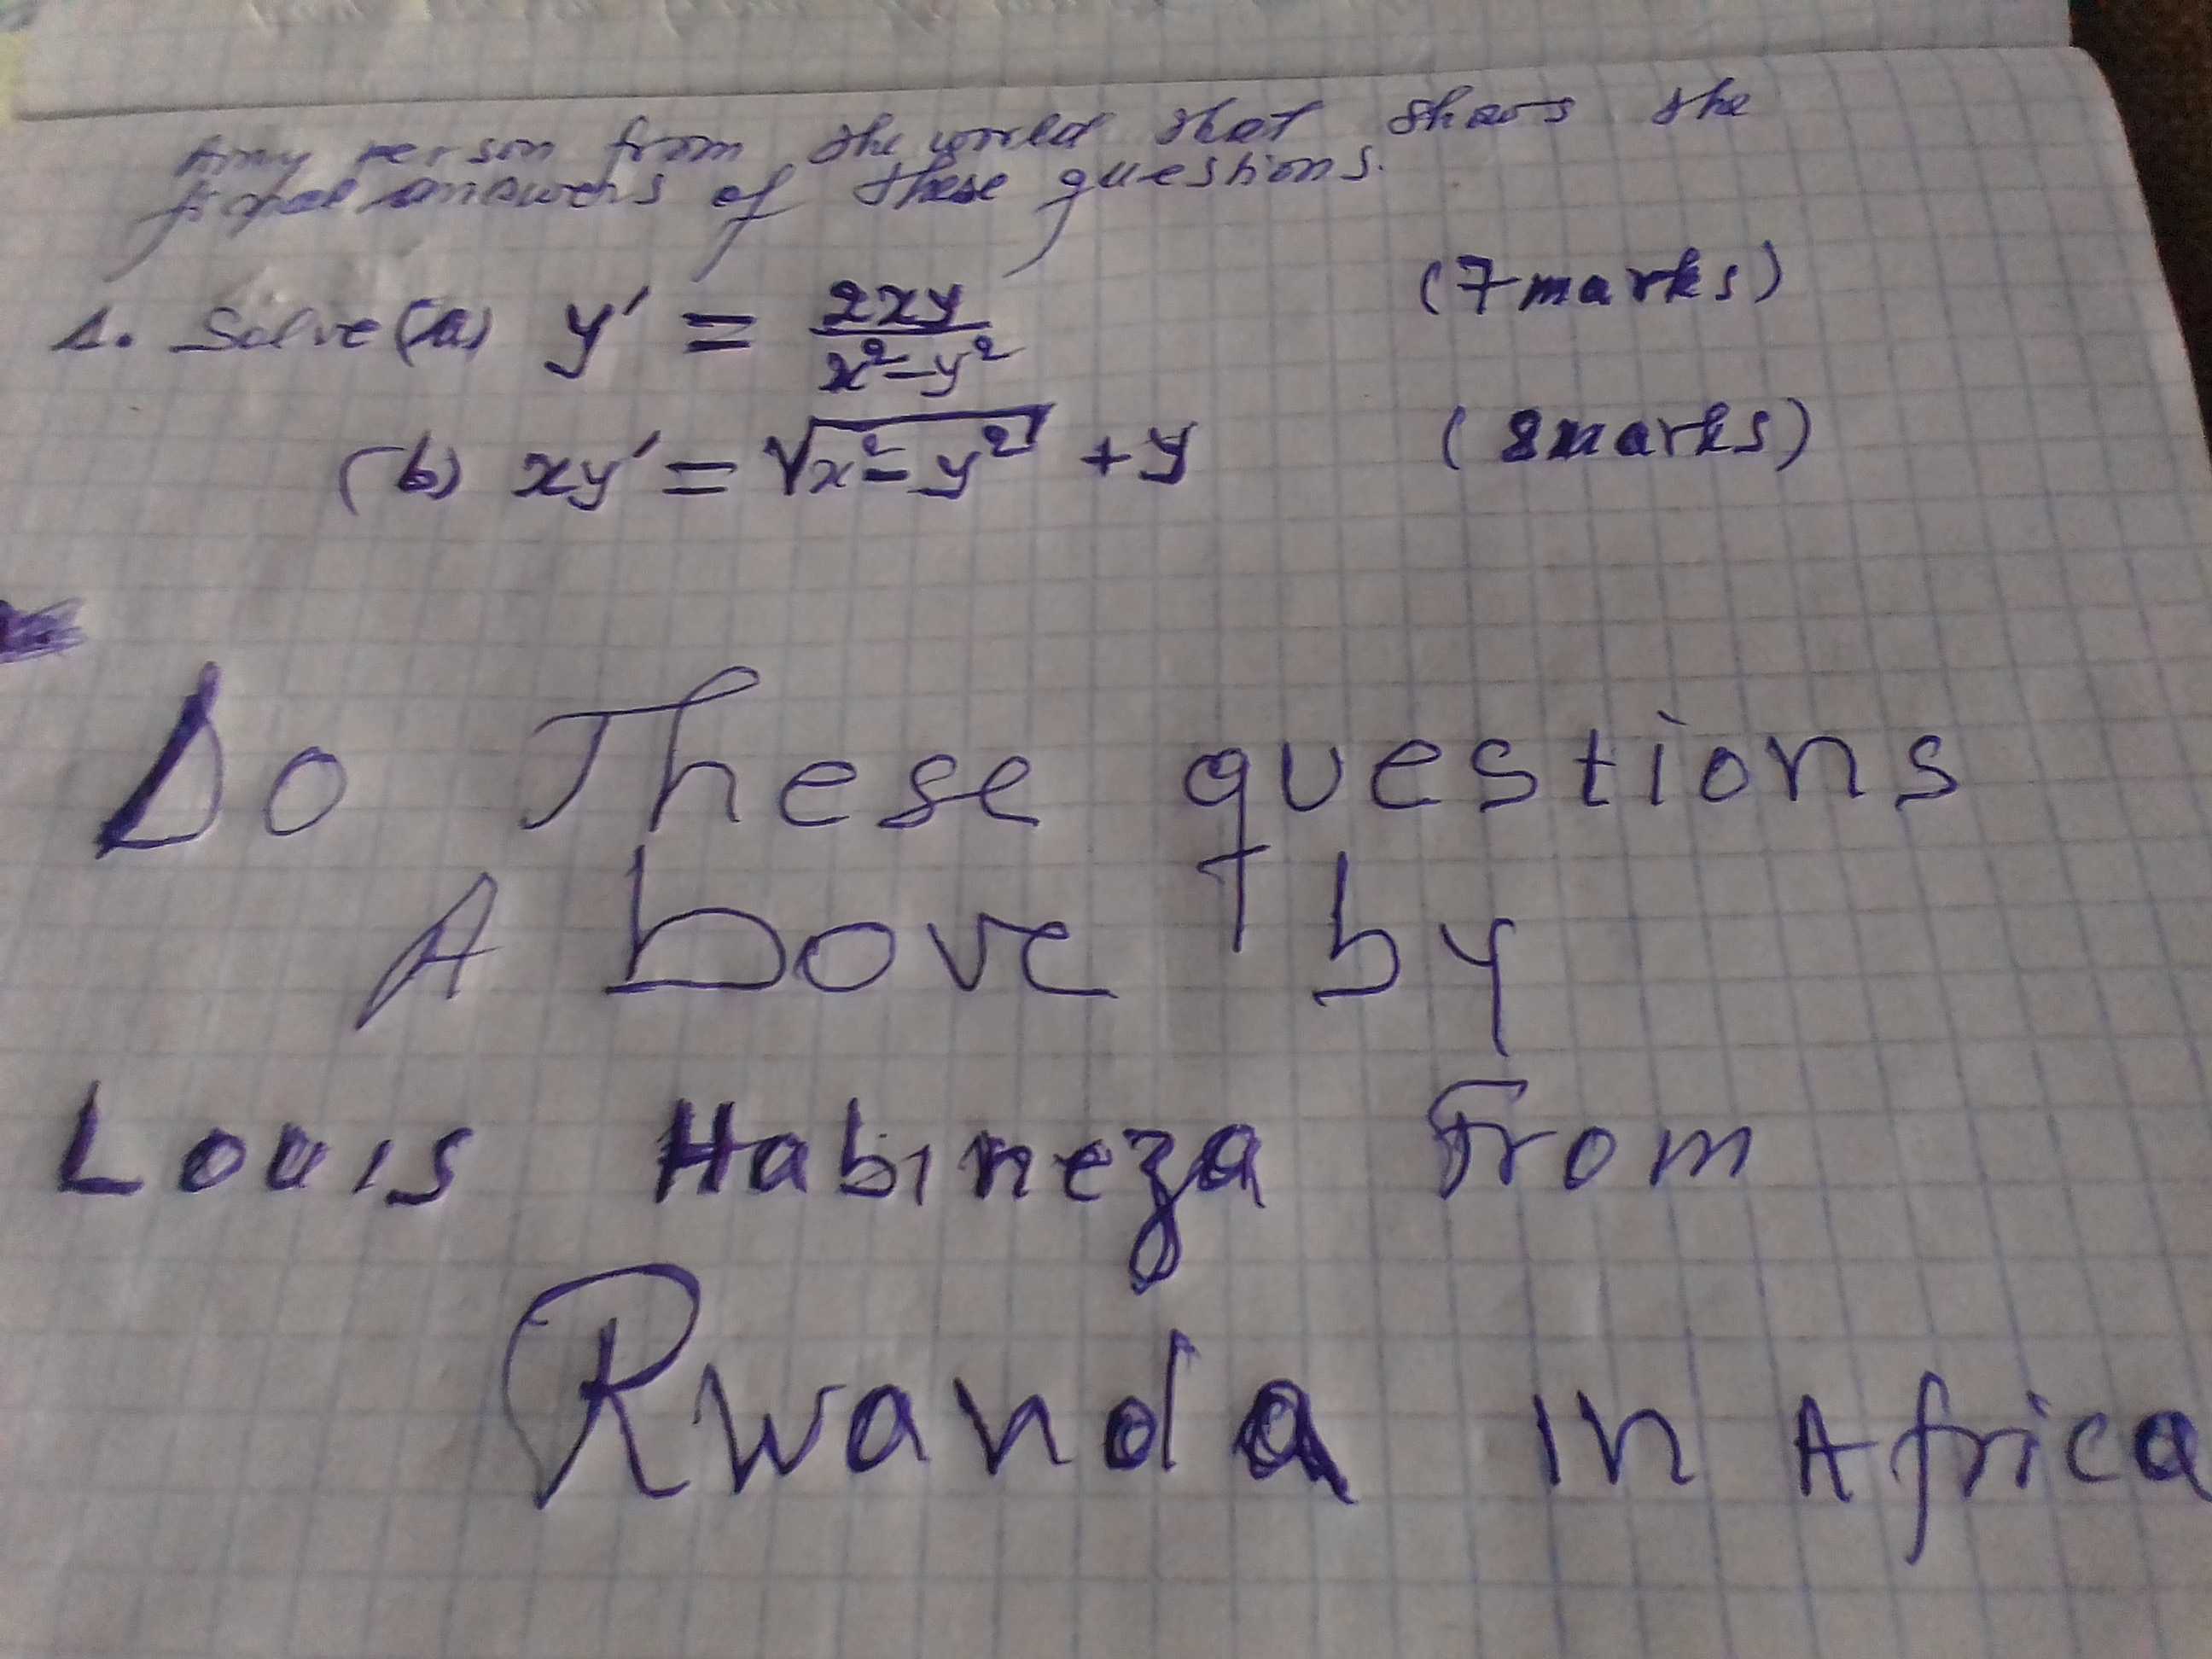 Any person from the world that shows the
final answers of these questions.
1. Solve (a) y′ = 2xy / x²−y² (7 marks)
(b) xy′ = √x²−y² + y (8 marks)
Do These questions
Above by
Louis Habineza From
Rwanda in Africa